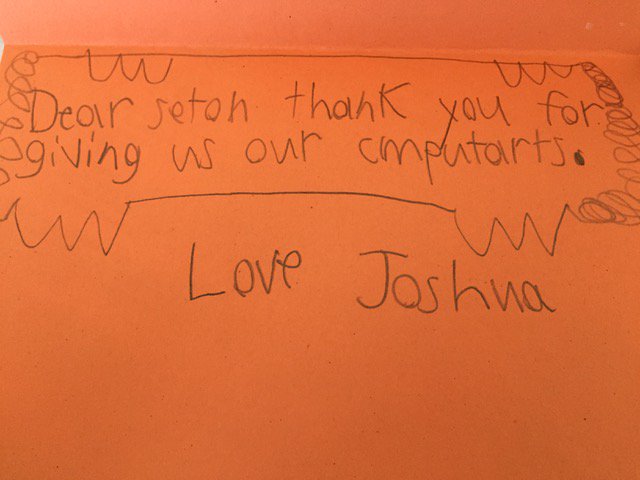 Dear setoh thank you for
giving us our cmputarts.
Love Joshua